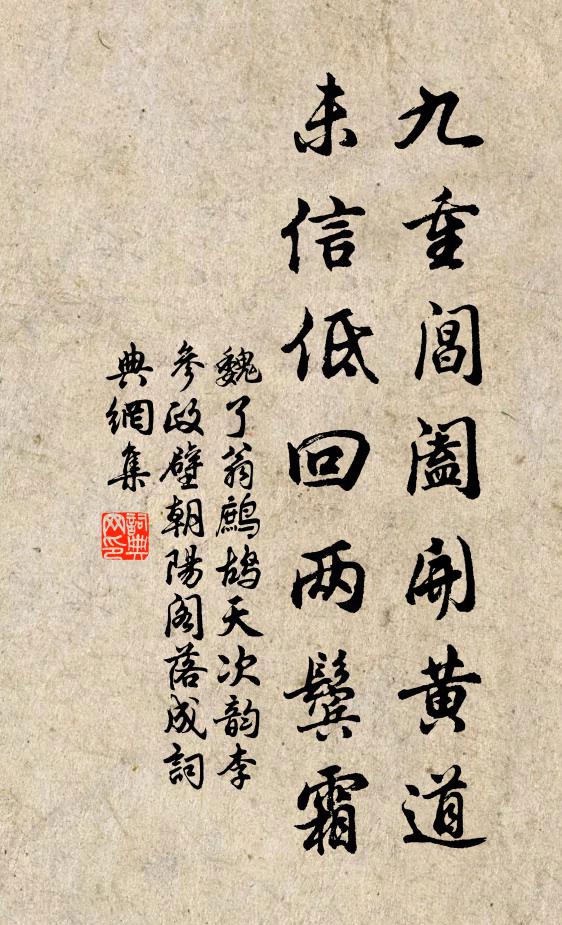 九重閶闔開黃道
未信低回两鬢霜
魏了翁鷓鴣天次韵李
參政壁朝陽阁落成詞
典網集
詞典网印